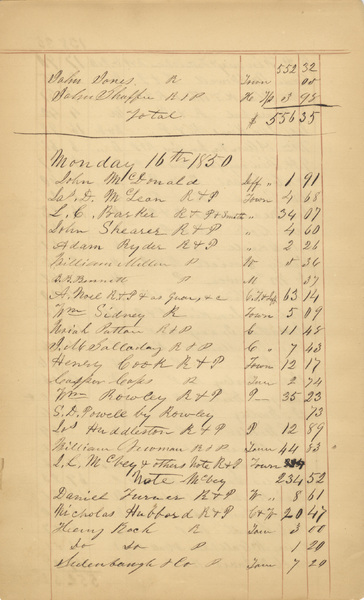 552 32
John Jones R Town 05
John Shaffer R & P H. Tp 3 98
Total $ 556 35
Monday 16th 1850
John McDonald Jeff " 1 91
Jas. D. McLean R & P Town 4 68
L. C. Barker R & P & Smith " 34 07
John Shearer R & P " 4 60
Adam Ryder R & P " 2 26
William Miller P W 0 36
Bennett P M 37
A. Noel R & P & as Guar, & c 63 14
Wm Sidney R Town 5 09
Uriah Patton R & P C 11 48
Salladay R & P C " 7 43
Henry Cook R & P Town 12 17
Casper Caps R Town 2 74
Wm Rowley R & P P 35 23
S. D. Powell by Rowley 73
Jas Huddleston R & P P 12 89
William Newman R & P Town 44 83
L. C. McBey & others Note R & P Town
Note McBey 234 52
Daniel Turner R & P W " 8 61
Nicholas Hubbard R & P C & W 20 47
Henry Rock R Town 3 00
Do Do P 1 20
Sidenbaugh & Co P Town 7 20